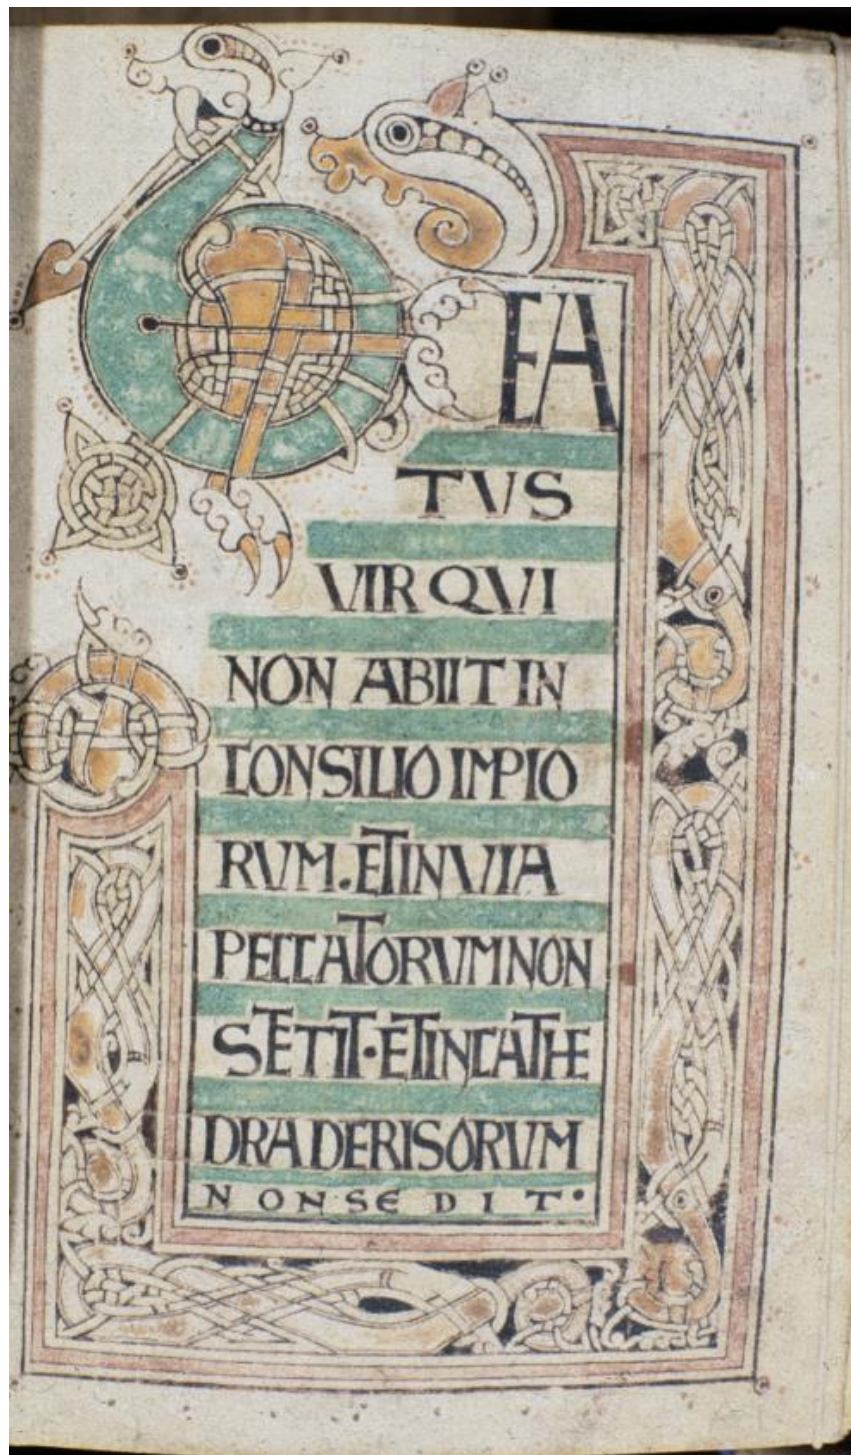 BEA
TVS
VIR QVI
NON ABIIT IN
CONSILIO IMPIO
RVM. ET IN VIA
PECCATORVM NON
STETIT · ET IN CATHE
DRA DERISORVM
NON SEDIT ·